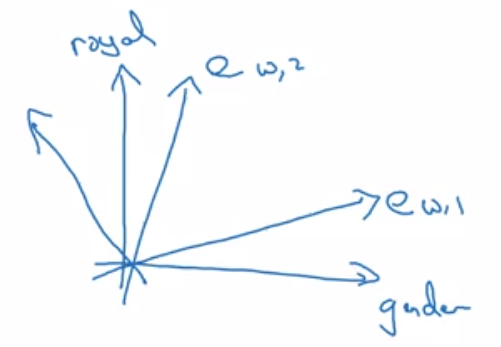 royal
e w,2
e w,1
gender